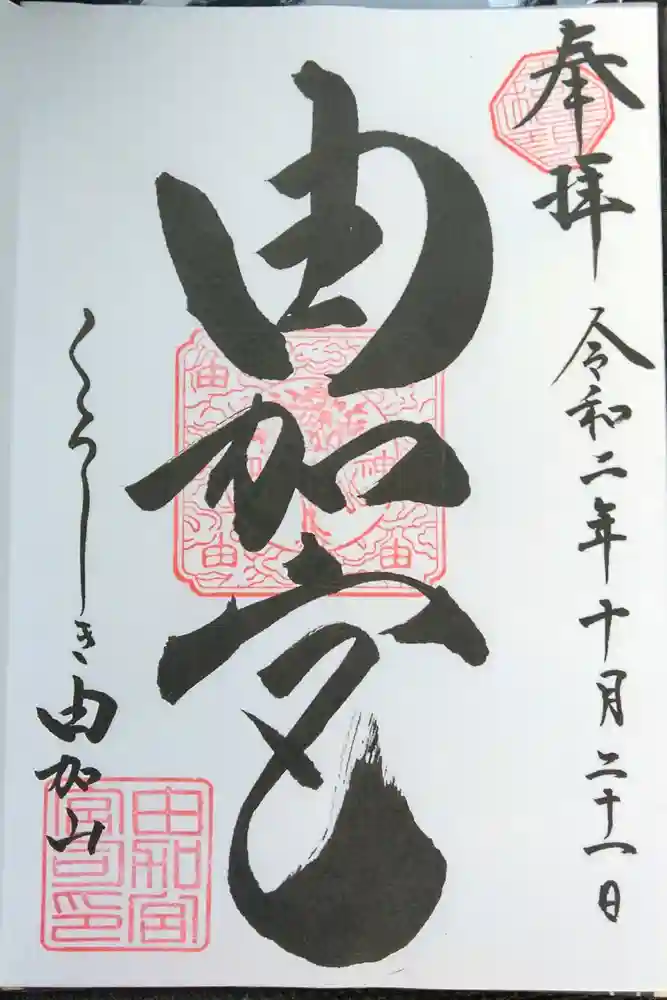 奉拝
令和二年十月二十一日
由加宮
くらしき由加山
由加宮司印